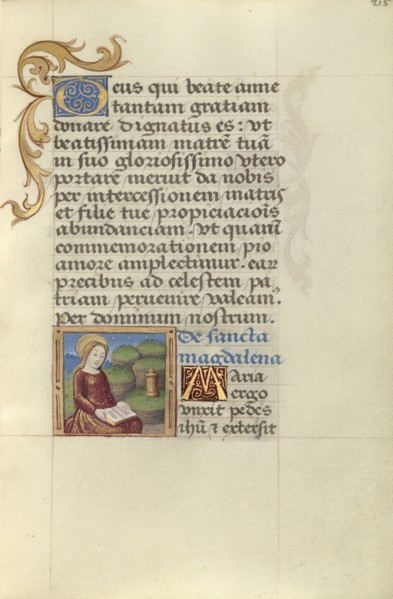 215
Deus qui beate anne
tantam gratiam
donare dignatus es: vt
beatissimam matrē tuā
in suo gloriosissimo vtero
portare meruit da nobis
per intercessionem matris
et filie tue propiciaciōis
abundanciam. vt quarū
commemorationem pio
amore amplectimur. earū
precibus ad celestem pa
triam peruenire valeam9.
Per dominum nostrum.
De sancta
magdalena
Maria
ergo
vnxit pedes
ihū ⁊ extersit